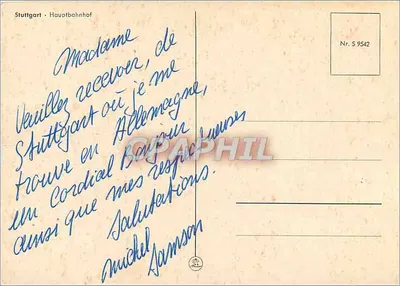 Stuttgart - Hauptbahnhof
Nr. S 9542
Madame
Veuillez recevoir, de
Stuttgart où je me
trouve en Allemagne,
un cordial Bonjour
ainsi que mes respectueuses
Salutations.
Michel
Samson
CPAPHIL